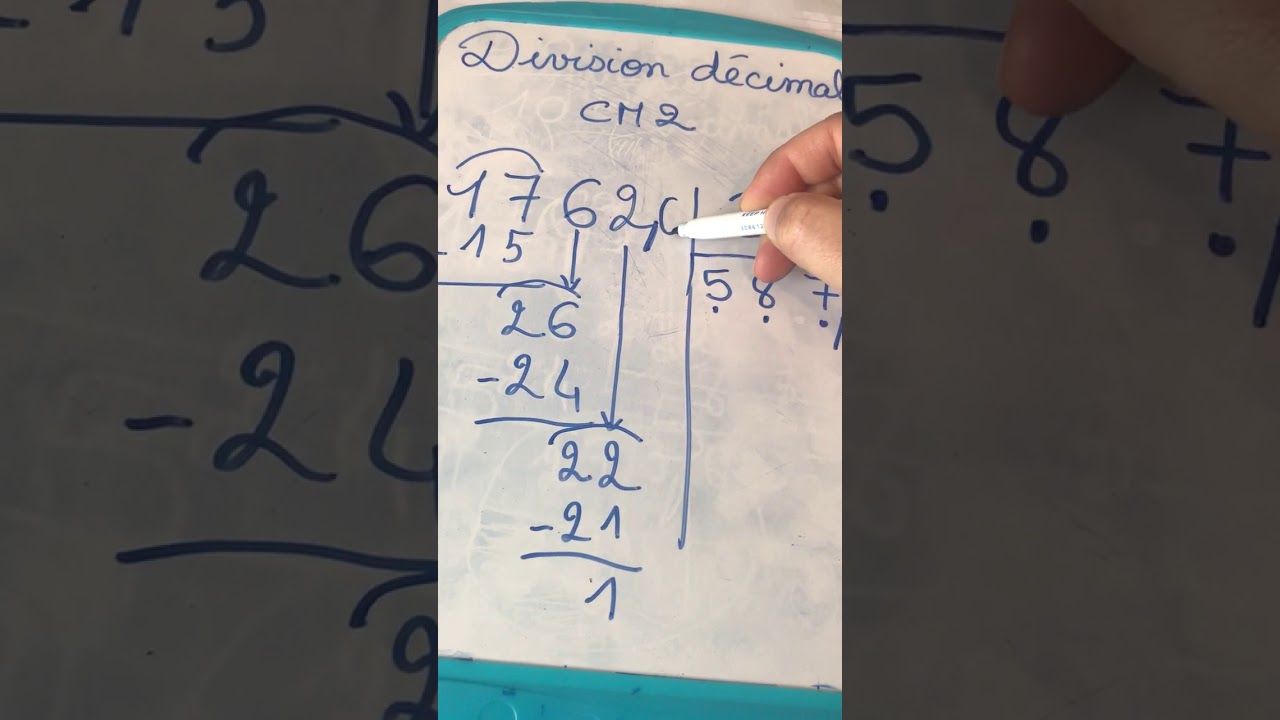 Division décimal
CM2
1762,0
-15
587,
26
-24
22
-21
1